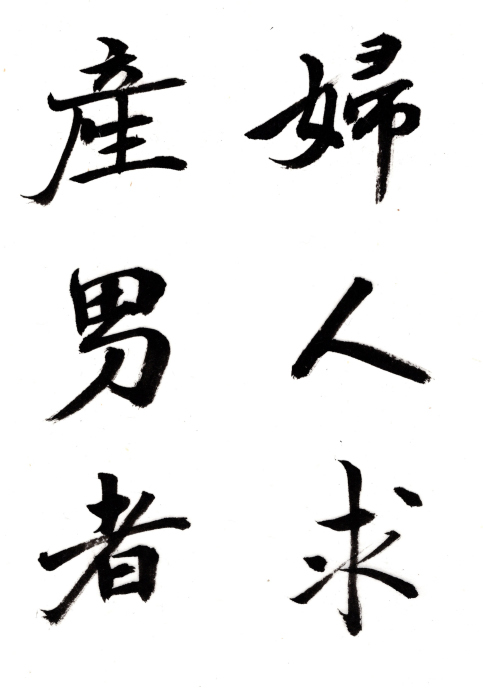 婦人求
産男者